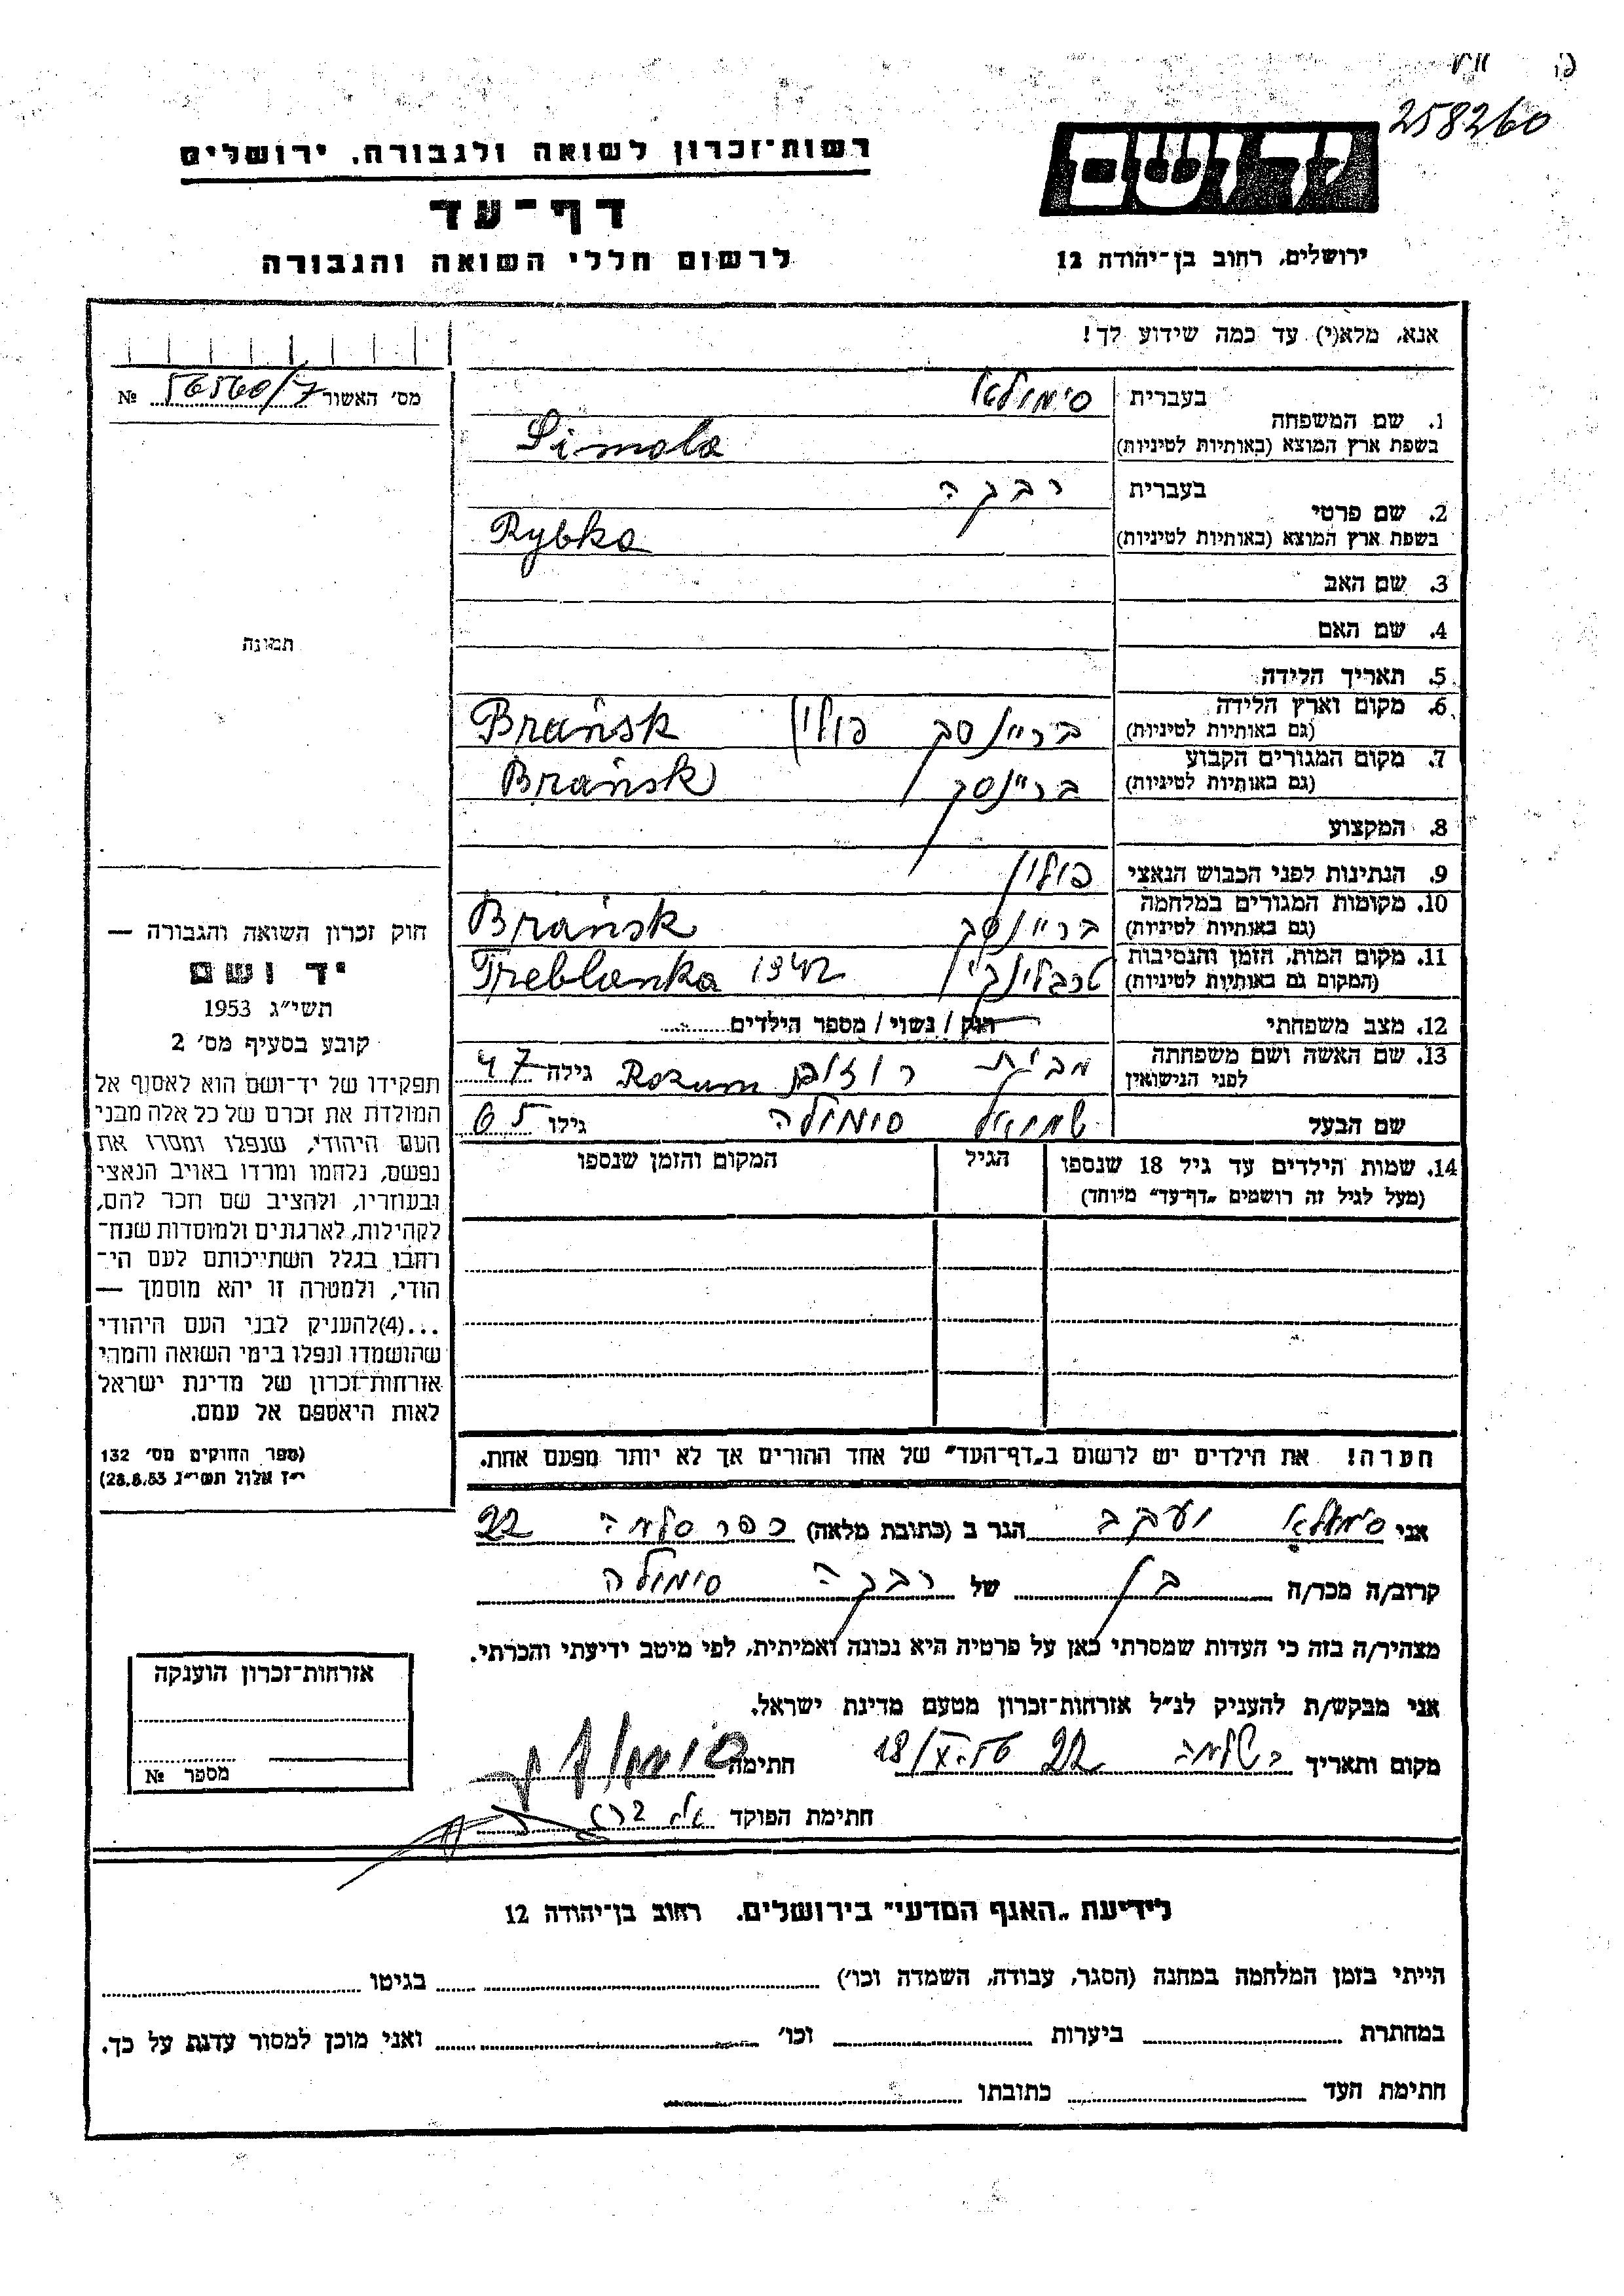 258260
רשות־זכרון לשואה ולגבורה, ירושלים
דף־עד
לרשום חללי השואה והגבורה
יד ושם
ירושלים, רחוב בן־יהודה 12
אנא, מלא(י) עד כמה שידוע לך!
מס׳ האשור 56560/7 №
1. שם המשפחה
בעברית סימולא
בשפת ארץ המוצא (באותיות לטיניות) Simola
2. שם פרטי
בעברית רבקה
בשפת ארץ המוצא (באותיות לטיניות) Rybka
3. שם האב
4. שם האם
תמונה
5. תאריך הלידה
6. מקום וארץ הלידה
(גם באותיות לטיניות) בריינסק פולין Brańsk
7. מקום המגורים הקבוע
(גם באותיות לטיניות) בריינסק Brańsk
8. המקצוע
9. הנתינות לפני הכבוש הנאצי פולין
10. מקומות המגורים במלחמה
(גם באותיות לטיניות) בריינסק Brańsk
11. מקום המות, הזמן והנסיבות
(המקום גם באותיות לטיניות) טרבלינקי Treblanka 1942
12. מצב משפחתי רוק / נשוי / מספר הילדים
13. שם האשה ושם משפחתה
לפני הנישואין מבית רוזום Rozum גילה 47
שם הבעל שמואל סימולה גילו 65
14. שמות הילדים עד גיל 18 שנספו
(מעל לגיל זה רושמים „דף־עד״ מיוחד)
הגיל
המקום והזמן שנספו
חוק זכרון השואה והגבורה —
יד ושם
תשי״ג 1953
קובע בסעיף מס׳ 2
תפקידו של יד־ושם הוא לאסוף אל
המולדת את זכרם של כל אלה מבני
העם היהודי, שנפלו ומסרו את
נפשם, נלחמו ומרדו באויב הנאצי
ובעוזריו, ולהציב שם וזכר להם,
לקהילות, לארגונים ולמוסדות שנח־
רחבו בגלל השתייכותם לעם הי־
הודי, ולמטרה זו יהא מוסמך —
...(4)להעניק לבני העם היהודי
שהושמדו ונפלו בימי השואה והמרי
אזרחות־זכרון של מדינת ישראל
לאות היאספם אל עמם.
(ספר החוקים מס׳ 132
י״ז אלול תשי״ג 28.8.53)
הערה! את הילדים יש לרשום ב„דף־העד״ של אחד ההורים אך לא יותר מפעם אחת.
אני סימולא יעקב הגר ב (כתובת מלאה) כפר סלמה 22
קרוב/ה מכר/ה בן של רבקה סימולה
מצהיר/ה בזה כי העדות שמסרתי כאן על פרטיה היא נכונה ואמיתית, לפי מיטב ידיעתי והכרתי.
אני מבקש/ת להעניק לנ״ל אזרחות־זכרון מטעם מדינת ישראל.
מקום ותאריך 22 18/X חתימה
חתימת הפוקד
אזרחות־זכרון הוענקה
מספר №
לידיעת „האגף המדעי״ בירושלים, רחוב בן־יהודה 12
הייתי בזמן המלחמה במחנה (הסגר, עבודה, השמדה וכו׳) בגיטו
במחתרת ביערות וכו׳ ואני מוכן למסור עדות על כך.
חתימת העד כתובתו